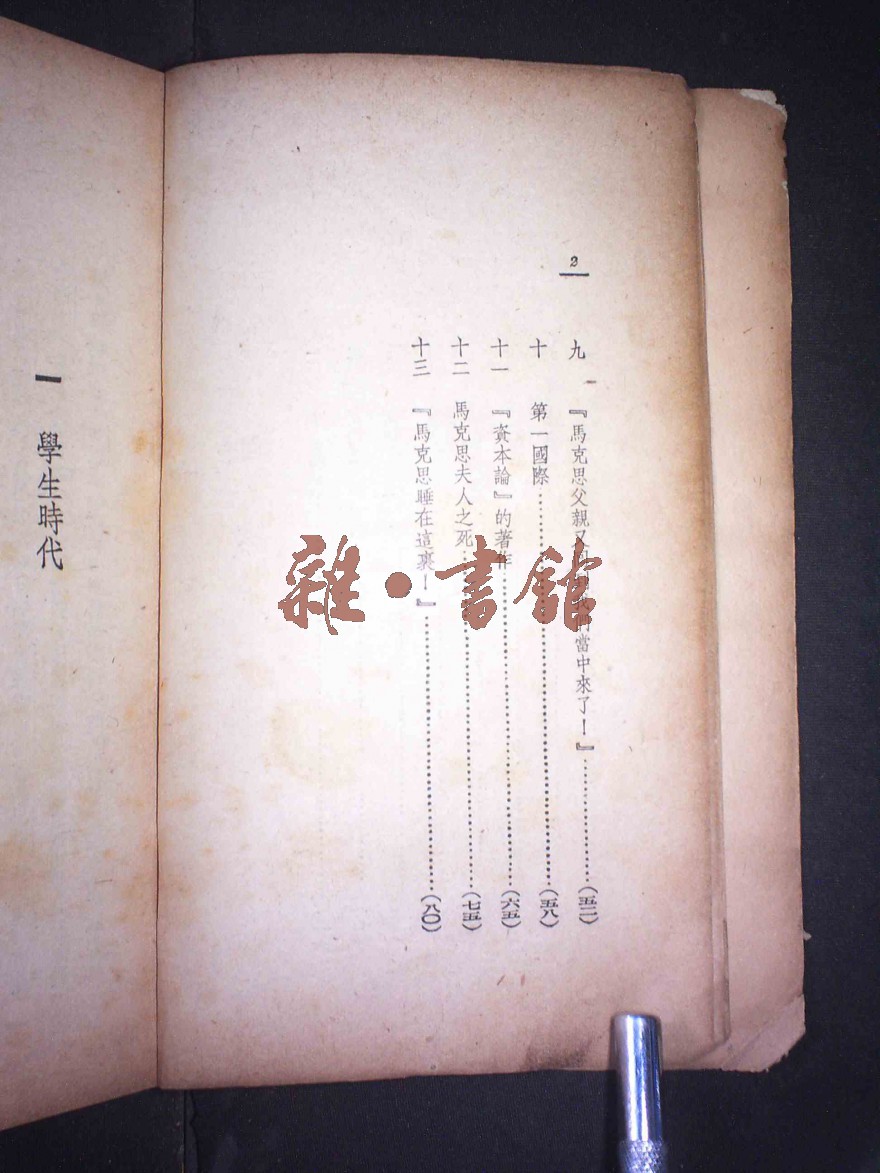 2
九 『馬克思父親又我們當中來了！』……………(五二)
十 第一國際……………(五八)
十一 『資本論』的著作……………(六五)
十二 馬克思夫人之死……………(七五)
十三 『馬克思睡在這裏！』……………(八〇)
一 學生時代
雜·書館